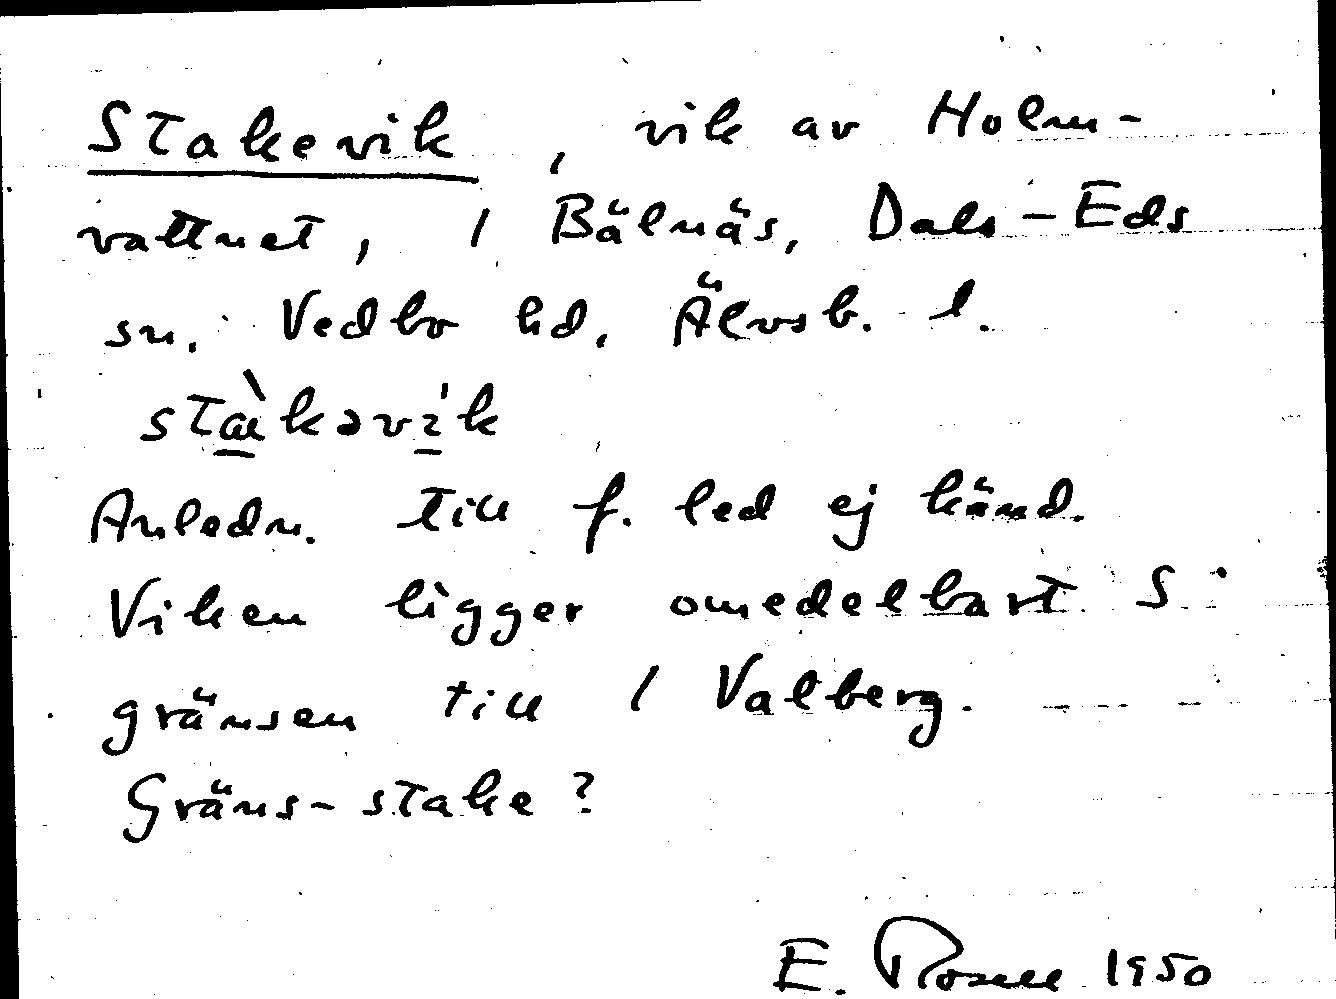 Stakevik, vik av Holm-
vattnet, / Bälnäs, Dals-Eds
sn. Vedbo hd, Älvsb. l.
stàkəvi'k
Anledn. till f. led ej känd.
Viken ligger omedelbart S
gränsen till / Valberg.
Gräns-stake?
E. 1950